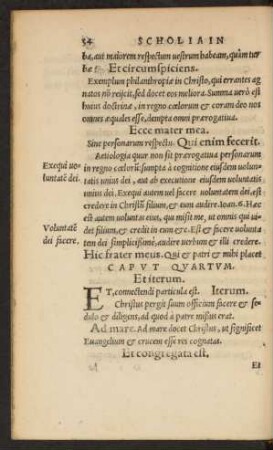 54 SCHOLIA IN
ba, aut maiorem respectum uestrum habeam, quàm tur
bæ? Et circumspiciens.
Exemplum philanthropiæ in Christo, qui errantes ag
natos nō reijcit, sed docet eos meliora. Summa uerò est
huius doctrinæ, in regno cœlorum & coram deo nos
omnes æquales esse, dempta omni prærogatiua.
Ecce mater mea.
Sine personarum respectu. Qui enim fecerit.
Aetiologia quar non sit prærogatiua personarum
Exequi uo-
luntatē dei.
in regno cœlorū: sumpta à cognitione eiusdem uolun-
tatis unius dei, aut ab executione eiusdem uoluntatis
unius dei. Exequi autem uel facere uoluntatem dei, est
credere in Christū filium, & eum audire. Ioan. 6. Hæc
est autem uoluntas eius, qui misit me, ut omnis qui ui-
Voluntatē
dei facere.
det filium, & credit in eum &c. Est & facere uolunta
tem dei simplicissimè, audire uerbum & illi credere.
Hic frater meus. Qui & patri & mihi placet
CAPVT QVARTVM.
Et iterum.
ET, connectendi particula est. Iterum.
Christus pergit suum officium facere & se-
dulò & diligens, ad quod à patre missus erat.
Ad mare. Ad mare docet Christus, ut significet
Euangelium & crucem esse rei cognatas.
Et congregata est,
Et